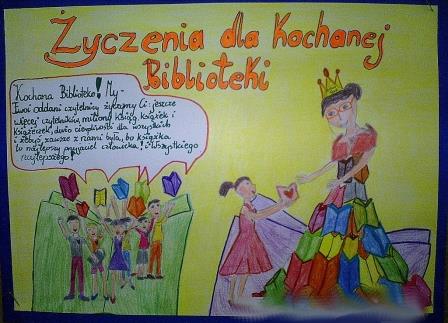 Życzenia dla Kochanej
Biblioteki
Kochana Biblioteko! My -
Twoi oddani czytelnicy życzymy Ci: jeszcze
więcej czytelników, miliony książek i
książeczek, dużo cierpliwości dla wszystkich
i żebyś zawsze z nami była, bo książka
to najlepszy przyjaciel człowieka! Wszystkiego
najlepszego!